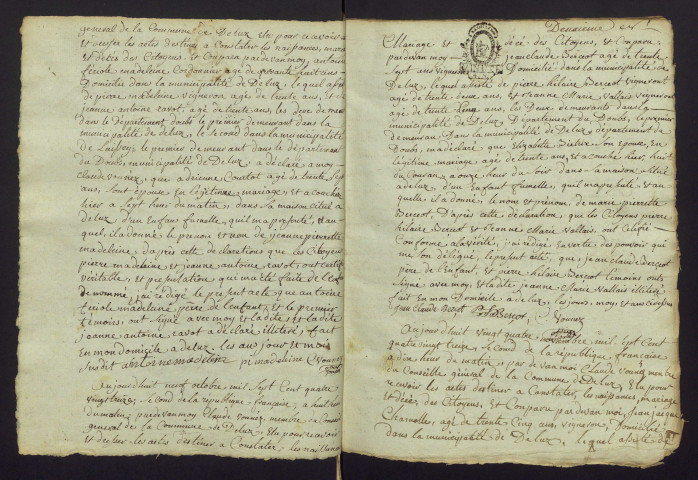 général de la Commune de Deluz Elu pour recevoir
et dresser les actes destinés a Constater les naissances, maria
et décès des Citoyens, et Comparu pardevant moy, antoine
ficiole madeleine Cordonnier agé de soixante huit ans
Domicilié dans la municipalité de Deluz, lequel assisté
de pierre madeleine vigneron agé de trente ans, et de
jeanne antoine cavot, agé de trente ans, les deux demeur
dans le département doubs le premier demeurant dans la
municipalité de deluz, le second dans la municipalité
de le premier demeurant dans le département
du Doubs, municipalité de Deluz, a déclaré a moy
Claude vounez, que adrienne Courlot agé de trente sept
ans, sont épouse en légitime mariage, est accouchée
hier a Sept heures du matin, dans sa maison situé a
deluz d'un Enfans fumelle, quil ma présenté, et au
quel, il a donné le prenom et non de jeanne pierrette
madeleine, daprès cette déclarations que les Citoyens
pierre madeleine et jeanne antoine cavot, ont certifié
véritable, et présentation qui m'a été faite de l'enfan
denommé, j'ai rédigé le présent acte que antoine
ficiole madeleine père de l'enfant, et le premier
témoins, ont signé avec moy, et ladite, et ladite
jeanne antoine cavot a déclaré illiteré, fait
En mon domicile a Deluz, les ans jour et mois
susdit antoinemadeleine pi madeleine C vounez
Aujourdhuit neuf octobre, mil Sept Cent quatre
vingt treize, le second de la république française, a huit heures
du matin, pardevant moy Claude vounez, membre du Conseil
général de la Commune de Deluz, Elu pour recevoir
et dresser les actes destinés a Constater, les naissances
Deuxieme
Mariage et décè des Citoyens, et Comparu
pardevant moy jean claude Bercot agé de trente
Sept ans vigneron Domicilié dans la municipalité de
Deluz, lequel assisté de pierre hilaire Bercot vigneront
agé de trente deux ans, et Jeanne Marie Vallais vigneronne
agé de trente Cinq ans, les Deux demeurants dans la
municipalité de Deluz, Département du Doubs, le premier
demeurant dans la municipalité de Deluz département du
Doubs, ma déclaré que Elizabeth Dietrée son Epouse, en
légitime mariage, agé de trente ans, et accouchée hier, huit
du Courant, a onze heures du Soir dans sa maison située
a deluz, d'un Enfant fumelle, quil ma présenté et au
quelle, il a donné, le nom et prénom, de marie pierrette
Bercot, D'après cette déclaration, que les Citoyens pierre
hilaire Bercot et Jeanne Marie Vallais, ont Certifié
Conforme a la vérité, j'ai rédigé en vertu des pouvoir qui
me son délégué, le présent acte, que, jean claude Bercot
père de l'Enfant, et pierre hilaire Bercot témoins onts
signé avec moy, et la dite jeanne Marie Vallais illiteré
fait En mon Domicile a Deluz, les jours, moy et ans cidessus
jean Claude Bercot P h Bercot, C Vounez
Aujourd'huit vingt quatre novembre, mil Sept Cent
quatre vingt treize, le second de la république, française
a dix heure du matin, par devan moy Claude vounez membre
du Conseille général de la Commune de Deluz, Elu pour
recevoir les actes destiner a Constater, les naissances, mariage
et décés, des Citoyens, et Comparu pardevan moy, jean jacque
Chamolle, agé de trente Cinq ans, vigneron, Domicilié
dans la municipalité de Deluz, lequel assisté de